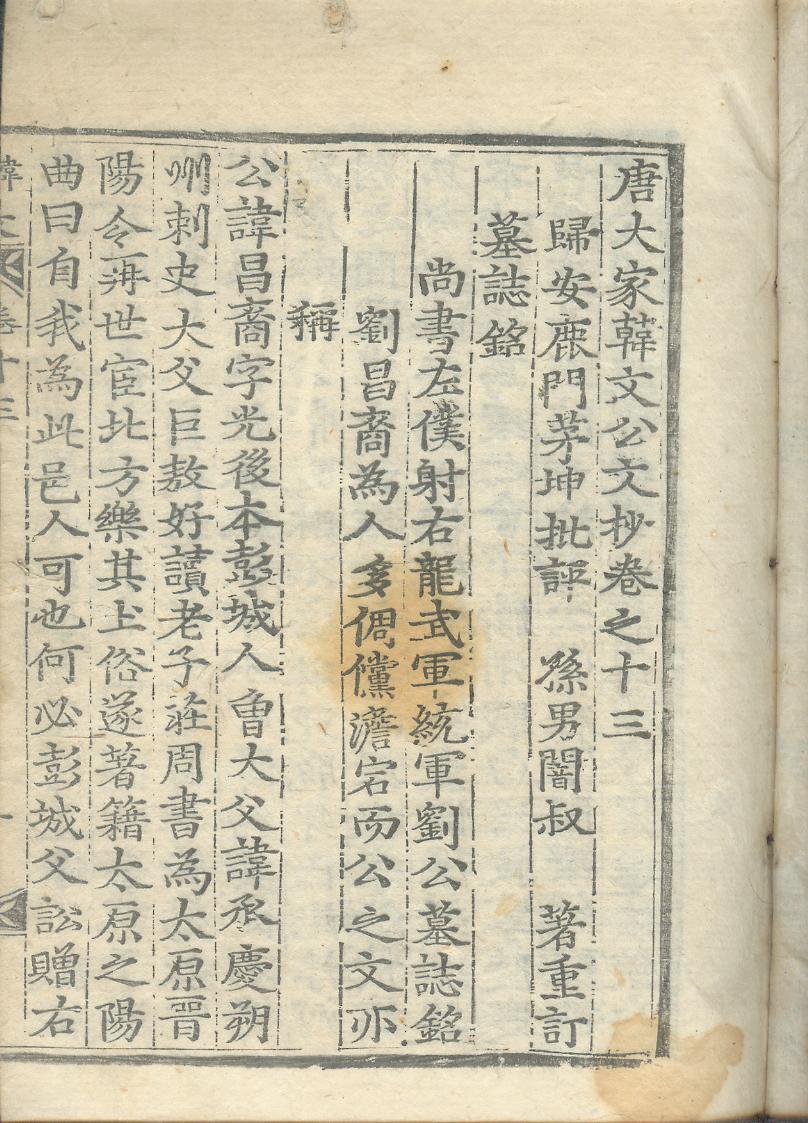 唐大家韓文公文抄卷之十三
歸安鹿門茅坤批評　孫男闇叔　著重訂
墓誌銘
尚書左僕射右龍武軍統軍劉公墓誌銘
劉昌裔為人多倜儻澹宕而公之文亦
稱
公諱昌裔字光後本彭城人曾大父諱承慶朔
州刺史大父巨敖好讀老子莊周書為太原晋
陽令再世宦北方樂其土俗遂著籍太原之陽
曲曰自我為此邑人可也何必彭城父訟贈右
韓文　卷十三　一